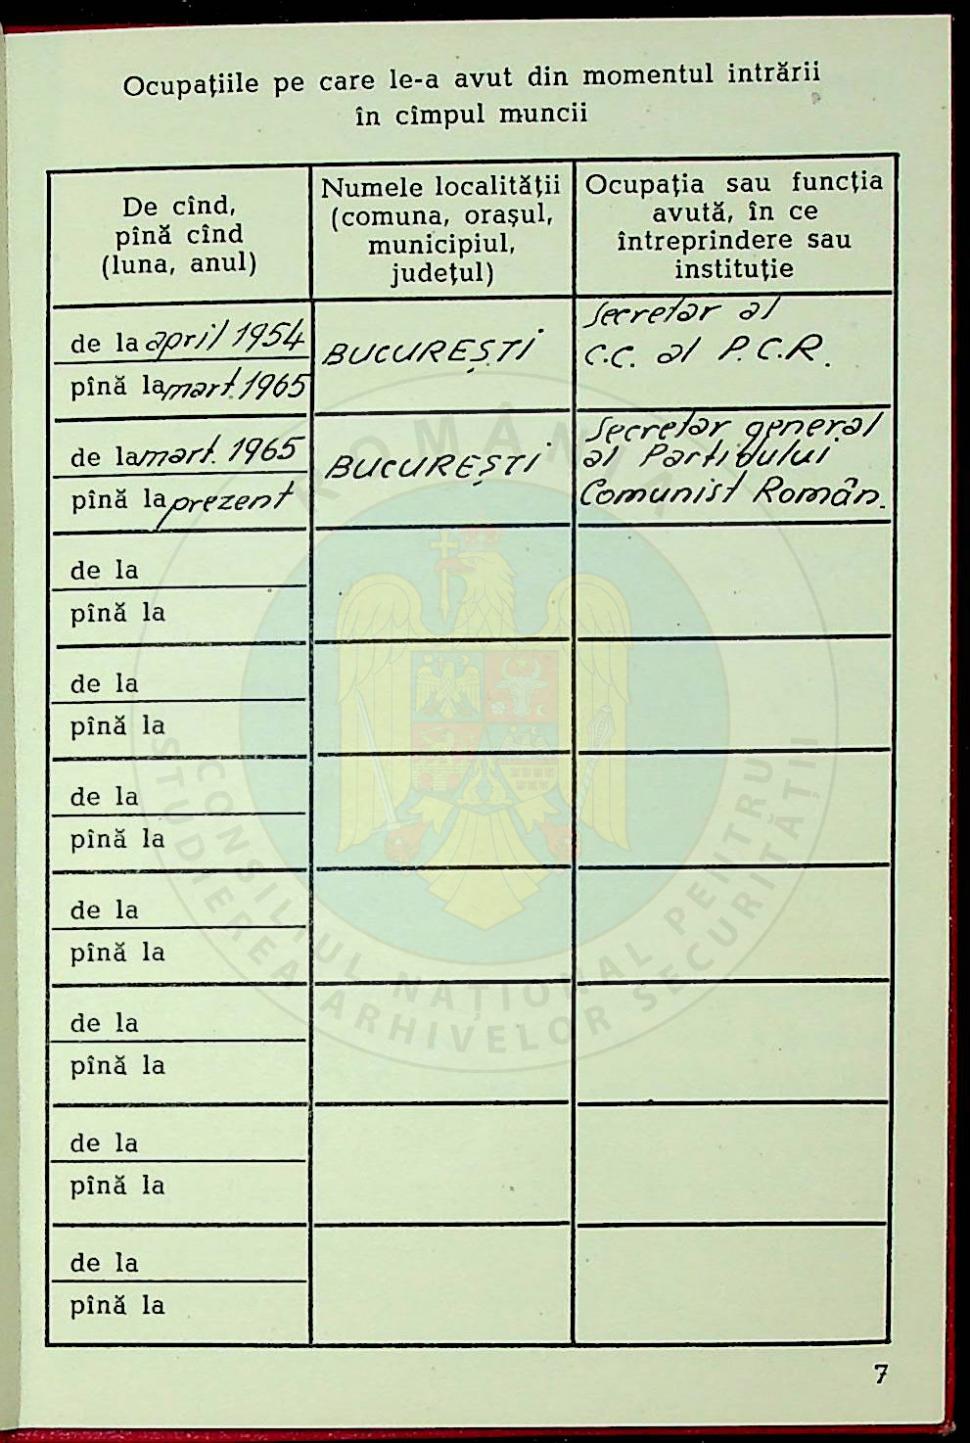 Ocupațiile pe care le-a avut din momentul intrării
în cîmpul muncii
De cînd,
pînă cînd
(luna, anul)
Numele localității
(comuna, orașul,
municipiul,
județul)
Ocupația sau funcția
avută, în ce
întreprindere sau
instituție
de la april 1954
pînă la mart. 1965
BUCUREȘTI
Secretar al
C.C. al P.C.R.
de la mart. 1965
pînă la prezent
BUCUREȘTI
Secretar general
al Partidului
Comunist Român.
de la
pînă la
de la
pînă la
de la
pînă la
de la
pînă la
de la
pînă la
de la
pînă la
de la
pînă la
7
ROMÂNIA
CONSILIUL NAȚIONAL PENTRU
STUDIEREA ARHIVELOR SECURITĂȚII